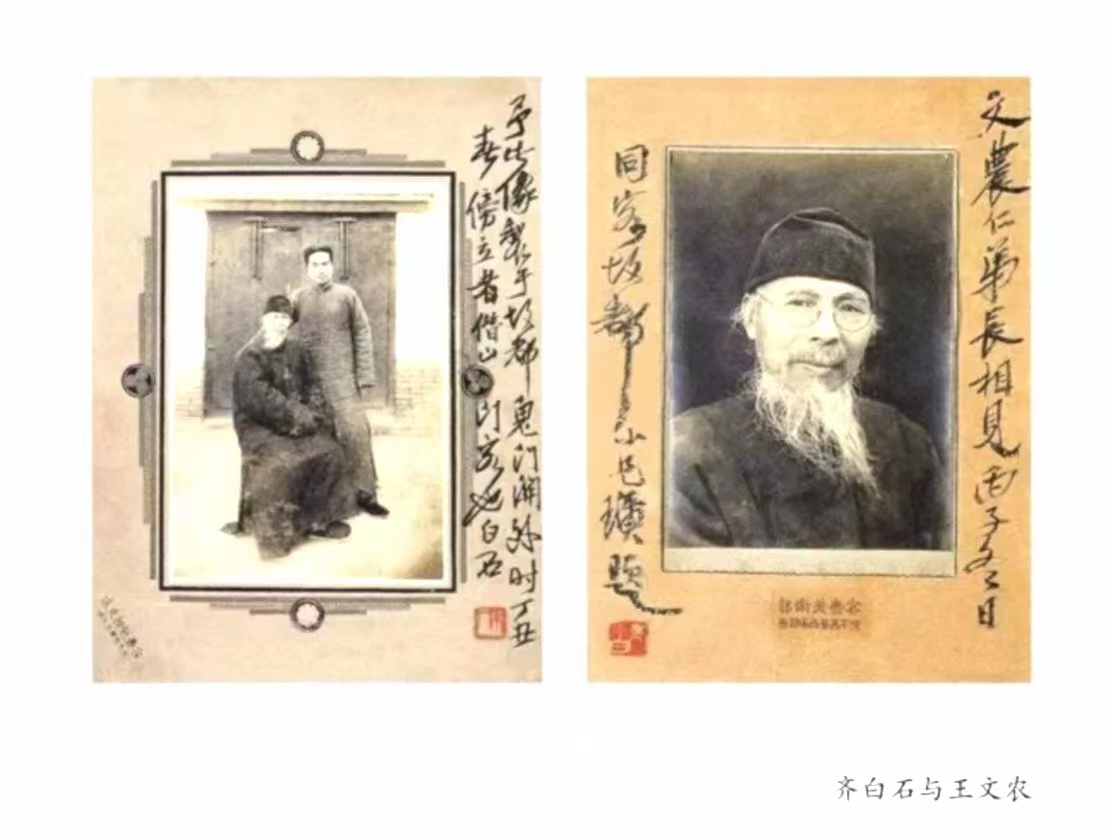 予此像製于故都鬼门関外时丁丑
春傍立者借山门客也白石
文農仁弟長相見丙子冬日
同客故都小兄璜題
齐白石与王文农